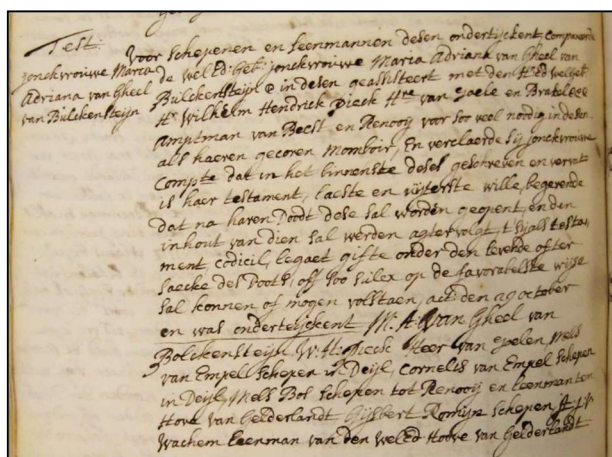 Test.
jonckvrouwe Maria
Adriana van Gheel
van Bulckensteijn
Voor schepenen en Leenmannen desen ondertijckent, Compareerde
de wel Ed: Geb: jonckvrouwe Maria Adriana van Gheel van
Bulckensteijn in desen geassisteert met den
Hr Wilhelm Hendrick Pieck Hre van en
Amptman van Beest en Renooij voor soo veel noodig in desen
als haeren gecoren momboir, En verclaerde sij jonckvrouwe
Compte dat in het binnenste deses geschreven en vervat
is haer testament, laeste en uijterste wille, begerende
dat na haren Doodt dese sal worden geopent, en den
inhout van dien sal werden agtervolgt, t sij als testa
ment, codicil, legaet gifte onder den levende ofter
saecke des Doots, off soo sulcx op de favorabelste wijse
sal konnen of mogen volstaen, act: den october
en was ondertijckent M: A: Van Gheel van
Bolckensteijn, W: H: Pieck Heer van Mels
van Empel schepen in Deijl, Cornelis van Empel schepen
in Deijl, Mels Bos schepen tot Renooij en leenman ten
Hove van Gelderlandt Gijsbert Romijn schepen
Wachem Leenman van den wel Ed Hoove van Gelderlandt